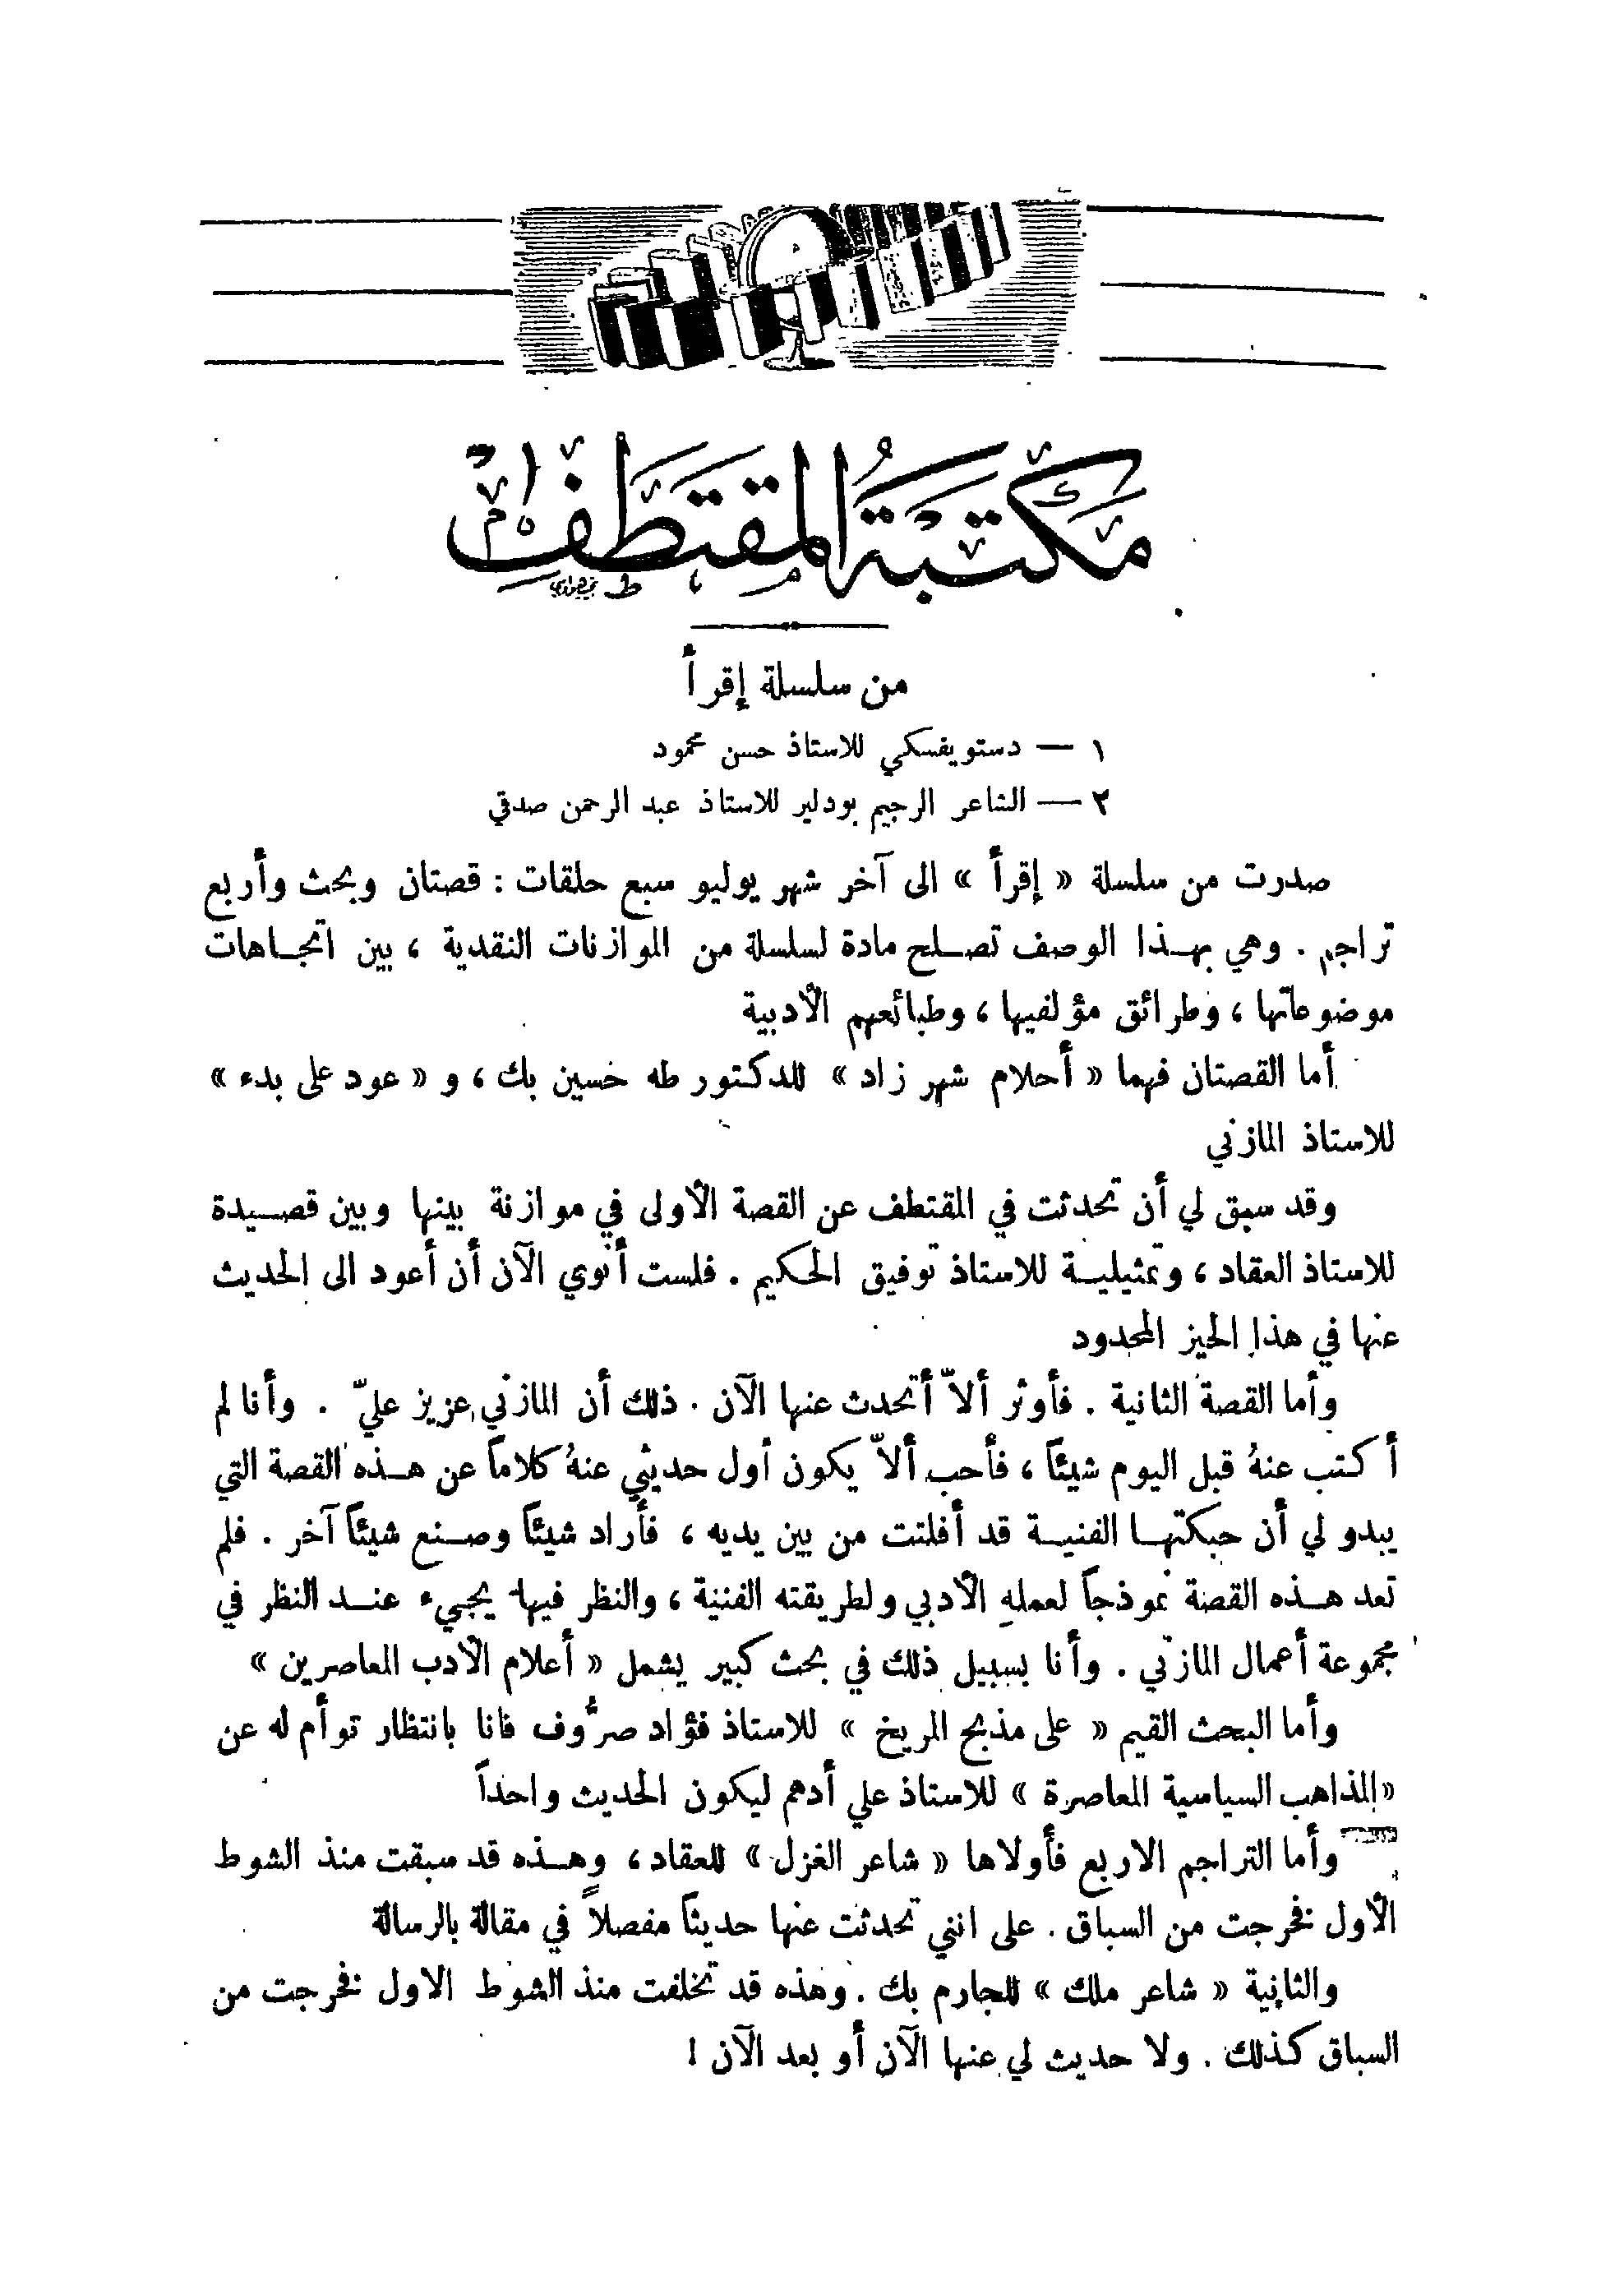 مكتبة المقتطف
من سلسلة إقرأ
١ — دستويفسكي للاستاذ حسن محمود
٢ — الشاعر الرجيم بودلير للاستاذ عبد الرحمن صدقي
صدرت من سلسلة « إقرأ » الى آخر شهر يوليو سبع حلقات : قصتان وبحث وأربع
تراجم . وهي بهذا الوصف تصلح مادة لسلسلة من الموازنات النقدية ، بين اتجاهات
موضوعاتها ، وطرائق مؤلفيها ، وطبائعهم الأدبية
أما القصتان فهما « أحلام شهر زاد » للدكتور طه حسين بك ، و « عود على بدء »
للاستاذ المازني
وقد سبق لي أن تحدثت في المقتطف عن القصة الأولى في موازنة بينها وبين قصيدة
للاستاذ العقاد ، وتمثيلية للاستاذ توفيق الحكيم . فلست أنوي الآن أن أعود الى الحديث
عنها في هذا الحيز المحدود
وأما القصة الثانية . فأوثر ألاّ أتحدث عنها الآن . ذلك أن المازني عزيز عليّ . وأنا لم
أكتب عنهُ قبل اليوم شيئاً ، فأحب ألاّ يكون أول حديثي عنهُ كلاماً عن هذه القصة التي
يبدو لي أن حبكتها الفنية قد أفلتت من بين يديه ، فأراد شيئاً وصنع شيئاً آخر . فلم
تعد هذه القصة نموذجاً لعملهِ الأدبي ولطريقته الفنية ، والنظر فيها يجيء عند النظر في
مجموعة أعمال المازني . وأنا بسبيل ذلك في بحث كبير يشمل « أعلام الأدب المعاصرين »
وأما البحث القيم « على مذبح المريخ » للاستاذ فؤاد صرُّوف فانا بانتظار توأم له عن
« المذاهب السياسية المعاصرة » للاستاذ علي أدهم ليكون الحديث واحداً
وأما التراجم الاربع فأولاها « شاعر الغزل » للعقاد ، وهذه قد سبقت منذ الشوط
الأول فخرجت من السباق . على انني تحدثت عنها حديثاً مفصلاً في مقالة بالرسالة
والثانية « شاعر ملك » للجارم بك . وهذه قد تخلفت منذ الشوط الاول فخرجت من
السباق كذلك . ولا حديث لي عنها الآن أو بعد الآن !